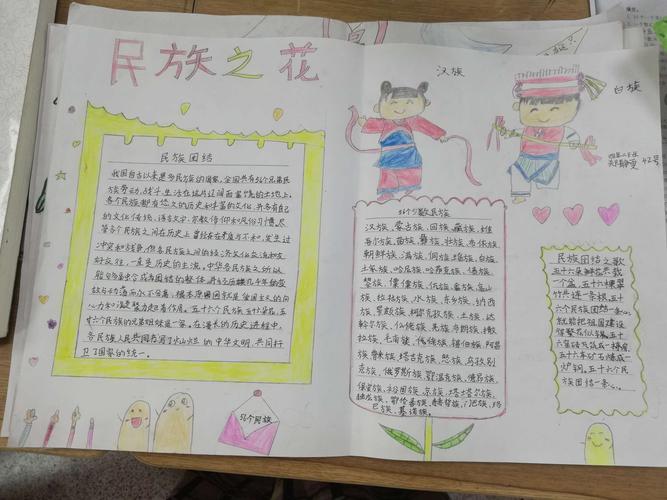 民族之花
民族团结
我国自古以来是多民族的国家,全国共有56个兄弟民
族劳动,战斗,生活在这片辽阔而富饶的土地上。
各个民族都有悠久的历史和丰富的文化,并各有自己
的文化传统,语言文字,宗教信仰和风俗习惯。尽
管各个民族之间在历史上曾经存在矛盾与不和,发生过
冲突和战争,但各民族之间的经济文化交流和友
好交往,一直是历史的主流。中华各民族之所以
族与动荡而永不分离,根本原因
心力和凝聚力起着作用。五十六个民族五十六朵花,五
十六个民族的兄弟姐妹是一家。在漫长的历史进程中,
各民族人民共同谱写了灿烂的中华文明,共同捍
卫了国家的统一。
56个民族
汉族
白族
四年二班
42号
56个少数民族
汉族,蒙古族,回族,藏族,维
吾尔族,苗族,彝族,壮族,布依族
朝鲜族,满族,侗族,瑶族,白族
土家族,哈尼族,哈萨克族,傣族
黎族,傈僳族,佤族,畲族,高山
族,拉祜族,水族,东乡族,纳西
族,景颇族,柯尔克孜族,土族,达
斡尔族,仫佬族,羌族,布朗族,撒
拉族,毛南族,仡佬族,锡伯族,阿昌
族,普米族,塔吉克族,怒族,乌孜别
克族,俄罗斯族,鄂温克族,德昂族,
保安族,裕固族,京族,塔塔尔族,
独龙族,鄂伦春族,赫哲族,门巴族,珞
巴族,基诺族。
民族团结之歌
五十六朵鲜花共栽
一个盆,五十六棵翠
竹共连一条根,五十
六个民族团结一条心,
就能把祖国建设
得繁花似锦。五十
六条江
五十六车矿石炼成一
炉钢,五十六个民
族团结一条心。